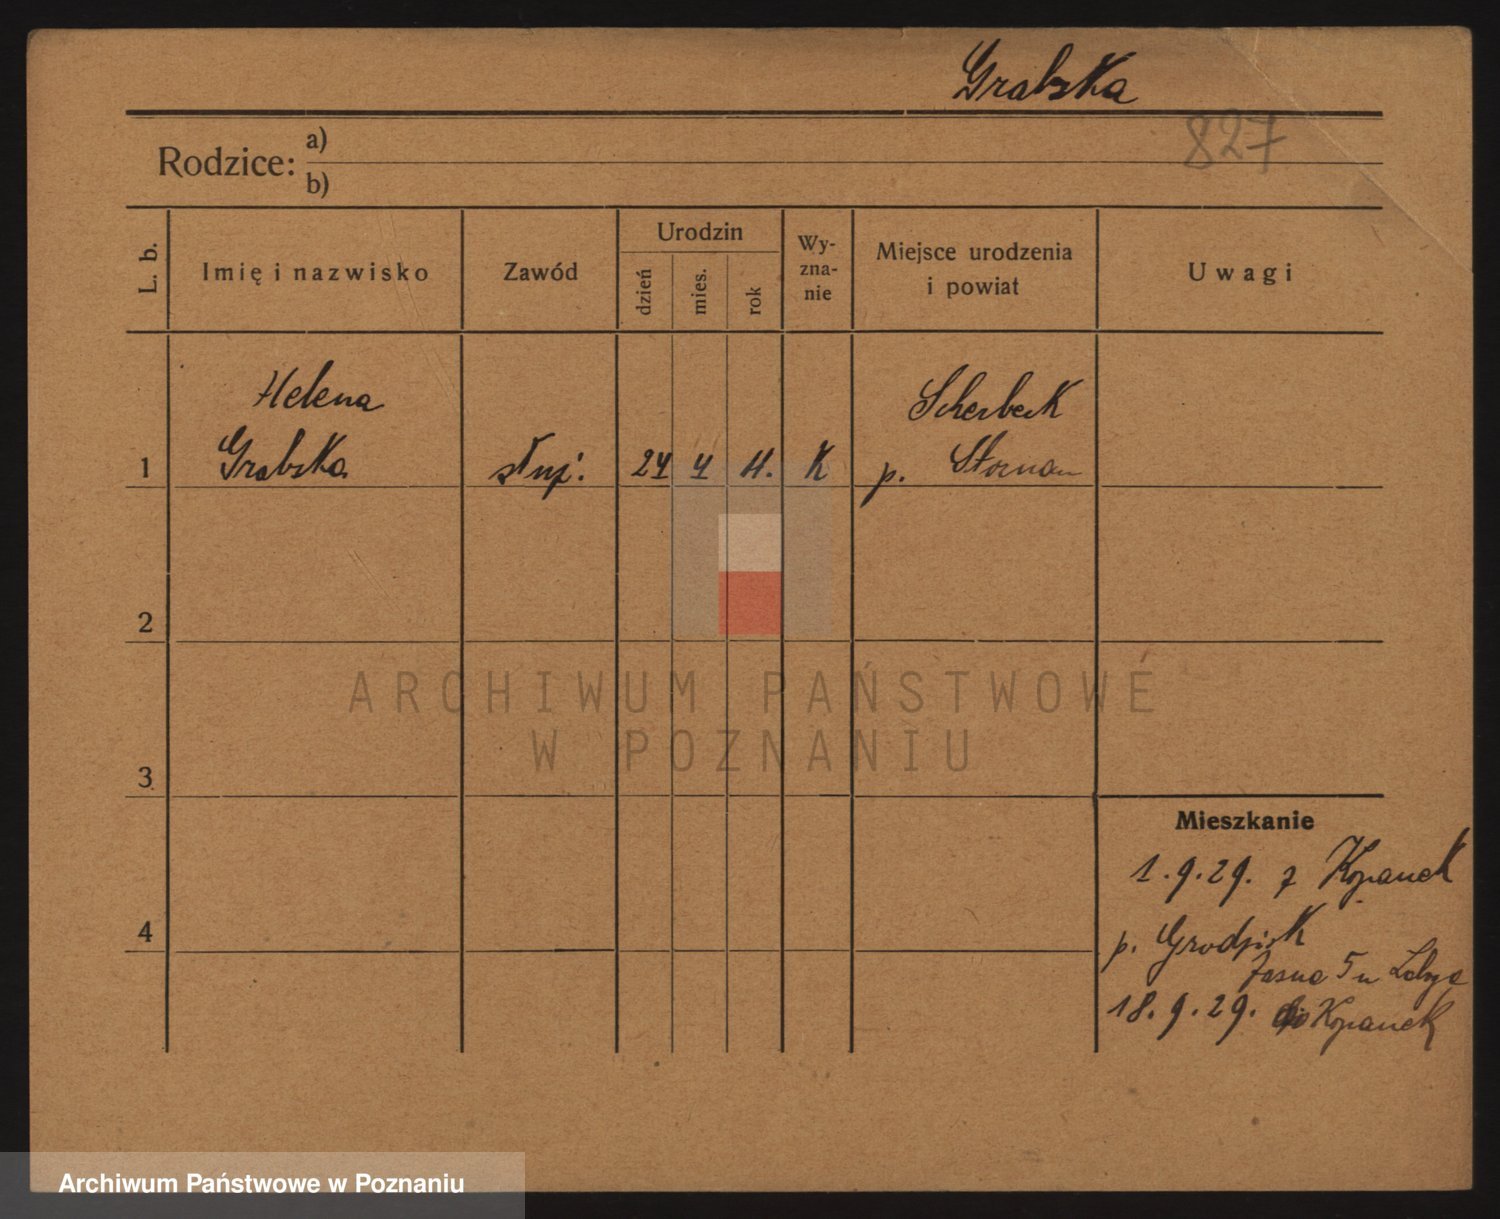 Grabska
827
Rodzice: a)
b)
L. b.
Imię i nazwisko
Zawód
Urodzin
dzień
mies.
rok
Wy-
zna-
nie
Miejsce urodzenia
i powiat
Uwagi
Helena
Grabska
1
służ.
24 4 11.
K
Scherbeck
p.
2
3
4
Mieszkanie
1.9.29. z Kopanek
p. Grodzisk
Jasna 5 u
18.9.29. do Kopanek
ARCHIWUM PAŃSTWOWE
W POZNANIU
Archiwum Państwowe w Poznaniu